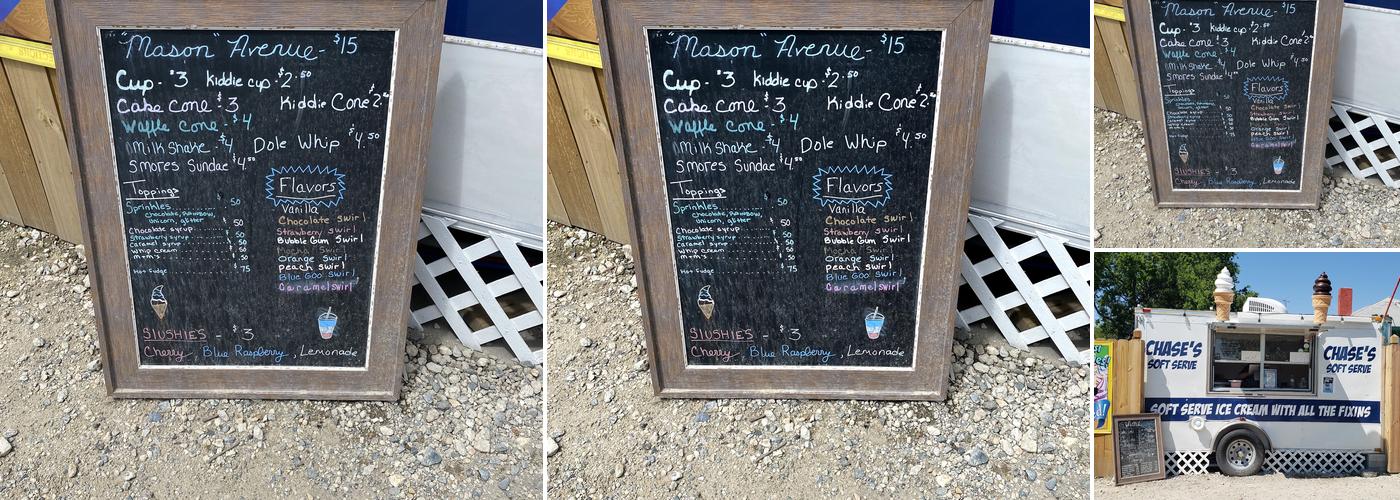 "Mason" Avenue - $15
Cup - $3 Kiddie cup - $2.50
Cake Cone $3 Kiddie Cone $2.50
Waffle Cone - $4
Milk Shake - $4 Dole Whip $4.50
S'mores Sundae $4.00
Toppings
Sprinkles 50
chocolate, Rainbow,
unicorn, glitter
Chocolate syrup 50
Strawberry syrup 50
Caramel syrup 50
Whip cream 50
m+m's 50
Hot fudge 75
Flavors
Vanilla
Chocolate swirl
Strawberry swirl
Bubble Gum Swirl
Orange Swirl
peach swirl
Blue Goo Swirl
Caramel swirl
SLUSHIES - $3
Cherry, Blue Raspberry, Lemonade
"Mason" Avenue - $15
Cup - $3 Kiddie cup - $2.50
Cake Cone $3 Kiddie Cone $2.50
Waffle Cone - $4
Milk Shake - $4 Dole Whip $4.50
S'mores Sundae $4.00
Toppings
Sprinkles 50
chocolate, Rainbow,
unicorn, glitter
Chocolate syrup 50
Strawberry syrup 50
Caramel syrup 50
Whip cream 50
m+m's 50
Hot fudge 75
Flavors
Vanilla
Chocolate swirl
Strawberry swirl
Bubble Gum Swirl
Orange Swirl
peach swirl
Blue Goo Swirl
Caramel swirl
SLUSHIES - $3
Cherry, Blue Raspberry, Lemonade
"Mason" Avenue - $15
Cup - $3 Kiddie cup - $2.50
Cake Cone $3 Kiddie Cone $2.50
Waffle Cone - $4
Milk Shake - $4 Dole Whip $4.50
S'mores Sundae $4.00
Toppings
Sprinkles
Flavors
Vanilla
Chocolate swirl
Strawberry swirl
Bubble Gum Swirl
Orange Swirl
peach swirl
Blue Goo Swirl
Caramel swirl
SLUSHIES - $3
Cherry, Blue Raspberry, Lemonade
CHASE'S
SOFT SERVE
CHASE'S
SOFT SERVE
SOFT SERVE ICE CREAM WITH ALL THE FIXINS